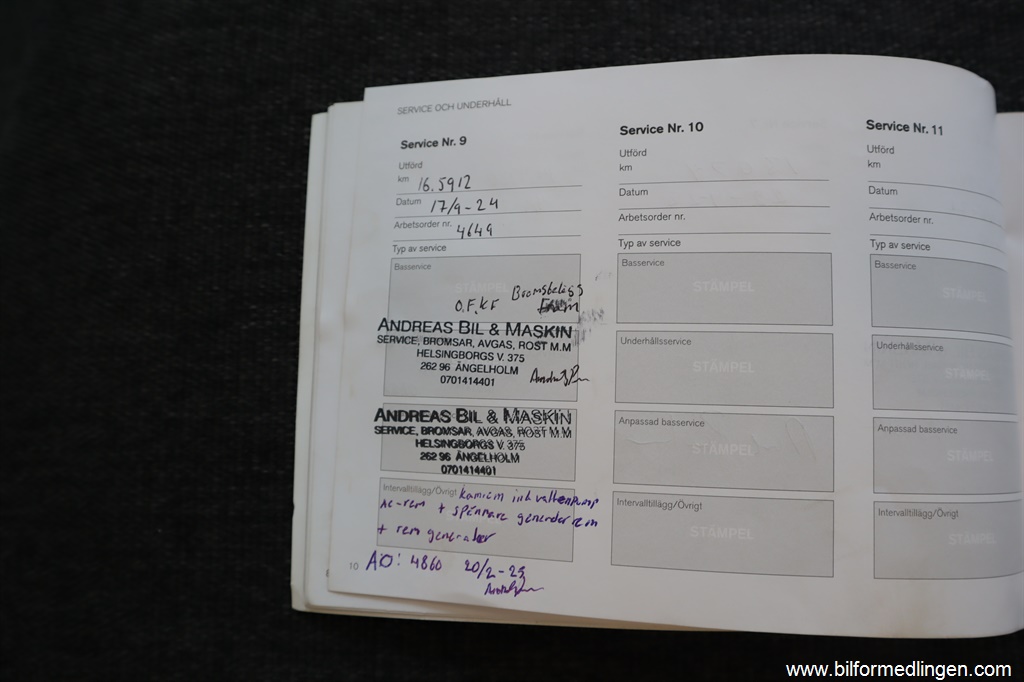 SERVICE OCH UNDERHÅLL
Service Nr. 9
Utförd
km 16.5912
Datum 17/9-24
Arbetsorder nr. 4649
Typ av service
Basservice
STÄMPEL
O.F.KF Bromsbelägg
Fram
ANDREAS BIL & MASKIN
SERVICE, BROMSAR, AVGAS, ROST M.M
HELSINGBORGS V. 375
262 96 ÄNGELHOLM
0701414401
ANDREAS BIL & MASKIN
SERVICE, BROMSAR, AVGAS, ROST M.M
HELSINGBORGS V. 375
262 96 ÄNGELHOLM
0701414401
Intervalltillägg/Övrigt kamrem ink vattenpump
ac-rem + spännare generator rem
+ rem generator
10 AO: 4860 20/2-25
Service Nr. 10
Utförd
km
Datum
Arbetsorder nr.
Typ av service
Basservice
STÄMPEL
Underhållsservice
STÄMPEL
Anpassad basservice
STÄMPEL
Intervalltillägg/Övrigt
STÄMPEL
Service Nr. 11
Utförd
km
Datum
Arbetsorder nr.
Typ av service
Basservice
STÄMPEL
Underhållsservice
STÄMPEL
Anpassad basservice
STÄMPEL
Intervalltillägg/Övrigt
STÄMPEL
www.bilformedlingen.com